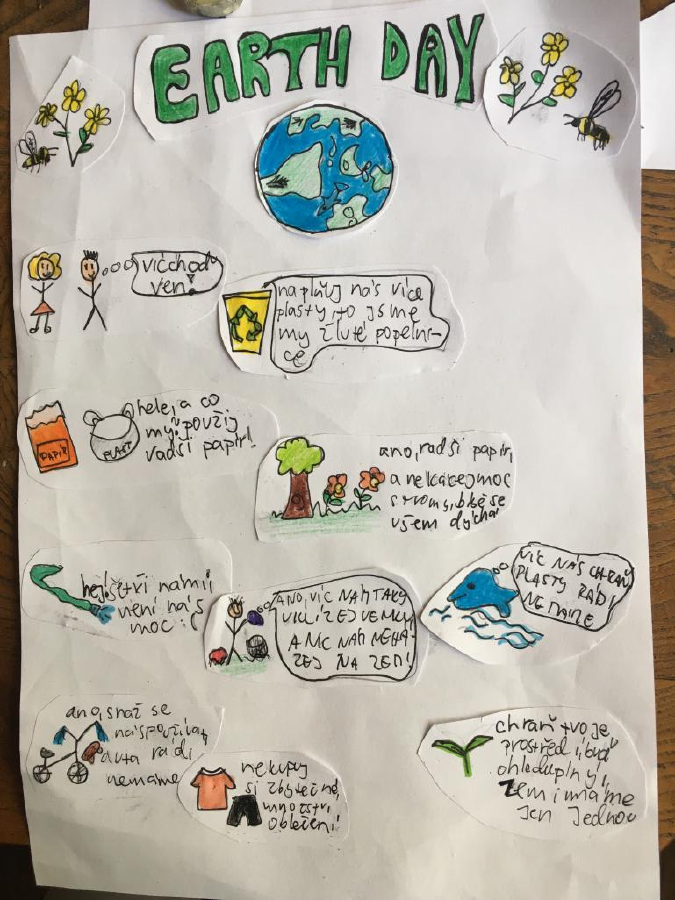 EARTH DAY
víc choď
ven!
naplňuj nás více
plasty, to jsme
my žluté popelni-
ce
PAPÍR
PLAST
hele, a co
my? použij
radši papír!
ano, radši papír,
a nekácej moc
stromy, blbě se
všem dýchá
hej! šetři námi
není nás
moc :(
ANO, VÍC NAM TAKY
UKLÍZEJ VENKU
A NIC NAM NEHÁ-
ZEJ NA ZEM!
VÍC NÁS CHRAŇ
PLASTY RÁDI
NEMAME
ano, snaž se
nás používat
auta rádi
nemáme
nekupuj
si zbytečné
množství
oblečení!
chraň tvoje
prostředí, buď
ohleduplný,
zemi máme
jen jednou